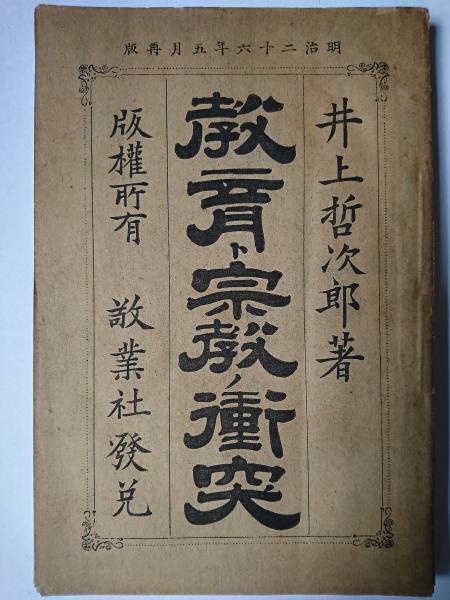 明治二十六年五月再版
井上哲次郎著
教育ト宗教ノ衝突
版權所有 敬業社發兌